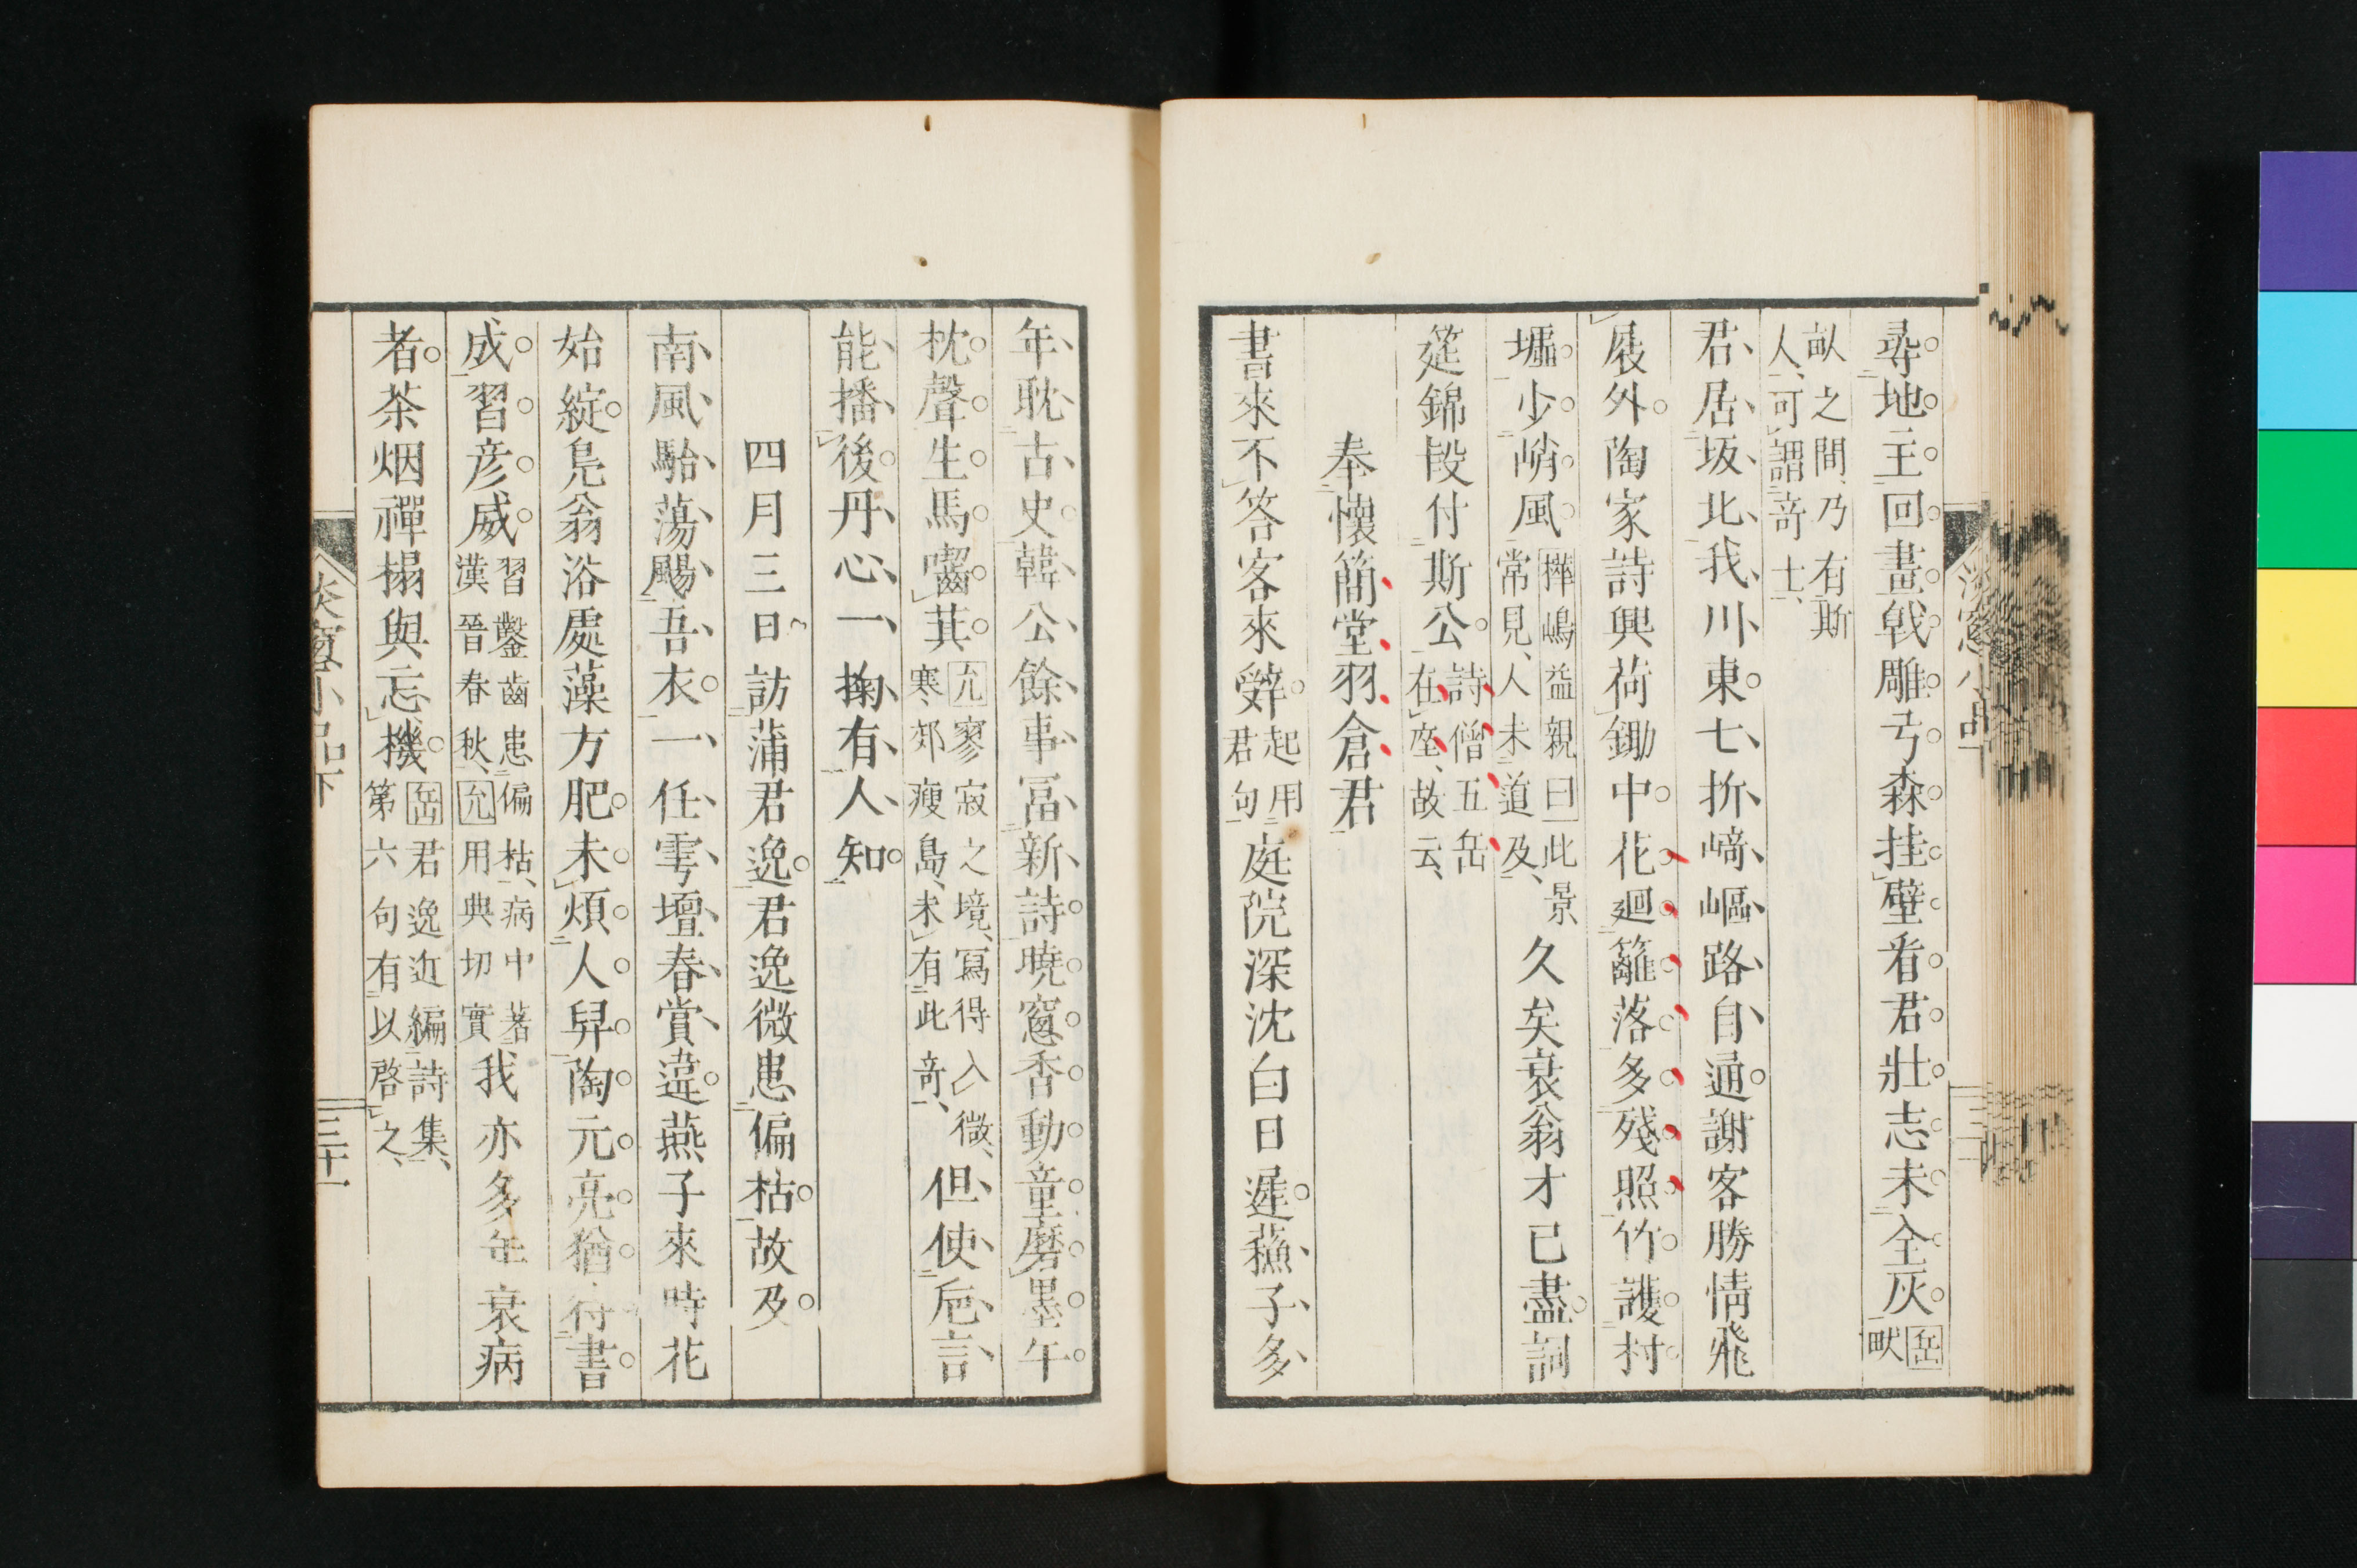 尋地主回畫戟雕弓森挂壁看君壯志未全灰岳畎
畝之間乃有斯
人可謂竒士
君居坂北我川東七折﨑嶇路自通謝客勝情飛
屐外陶家詩興荷鋤中花廻籬落多殘照竹護村
墟少峭風
樺嶋益親曰此景
常見人未道及
久矣衰翁才已盡詞
筵錦段付斯公
詩僧五岳
在座故云
奉懷簡堂羽倉君
書來不答客來辤
起用
君句
庭院深沈白日遲蘓子多
年耽古史韓公餘事冨新詩曉窓香動童磨墨午
枕聲生馬囓萁
允寥寂之境冩得入微
寒郊瘦島未有此竒
但使巵言
能播後丹心一掬有人知
四月三日訪蒲君逸君逸微患偏枯故及
南風駘蕩颺吾衣一任雩壇春賞違燕子來時花
始綻鳧翁浴處藻方肥未煩人舁陶元亮猶待書
成習彦威
習鑿齒患偏枯病中著
漢晉春秋允用典切實
我亦多年衰病
者茶烟禪榻與忘機
岳君逸近編詩集
第六句有以啓之
淡窓小品下
三十一